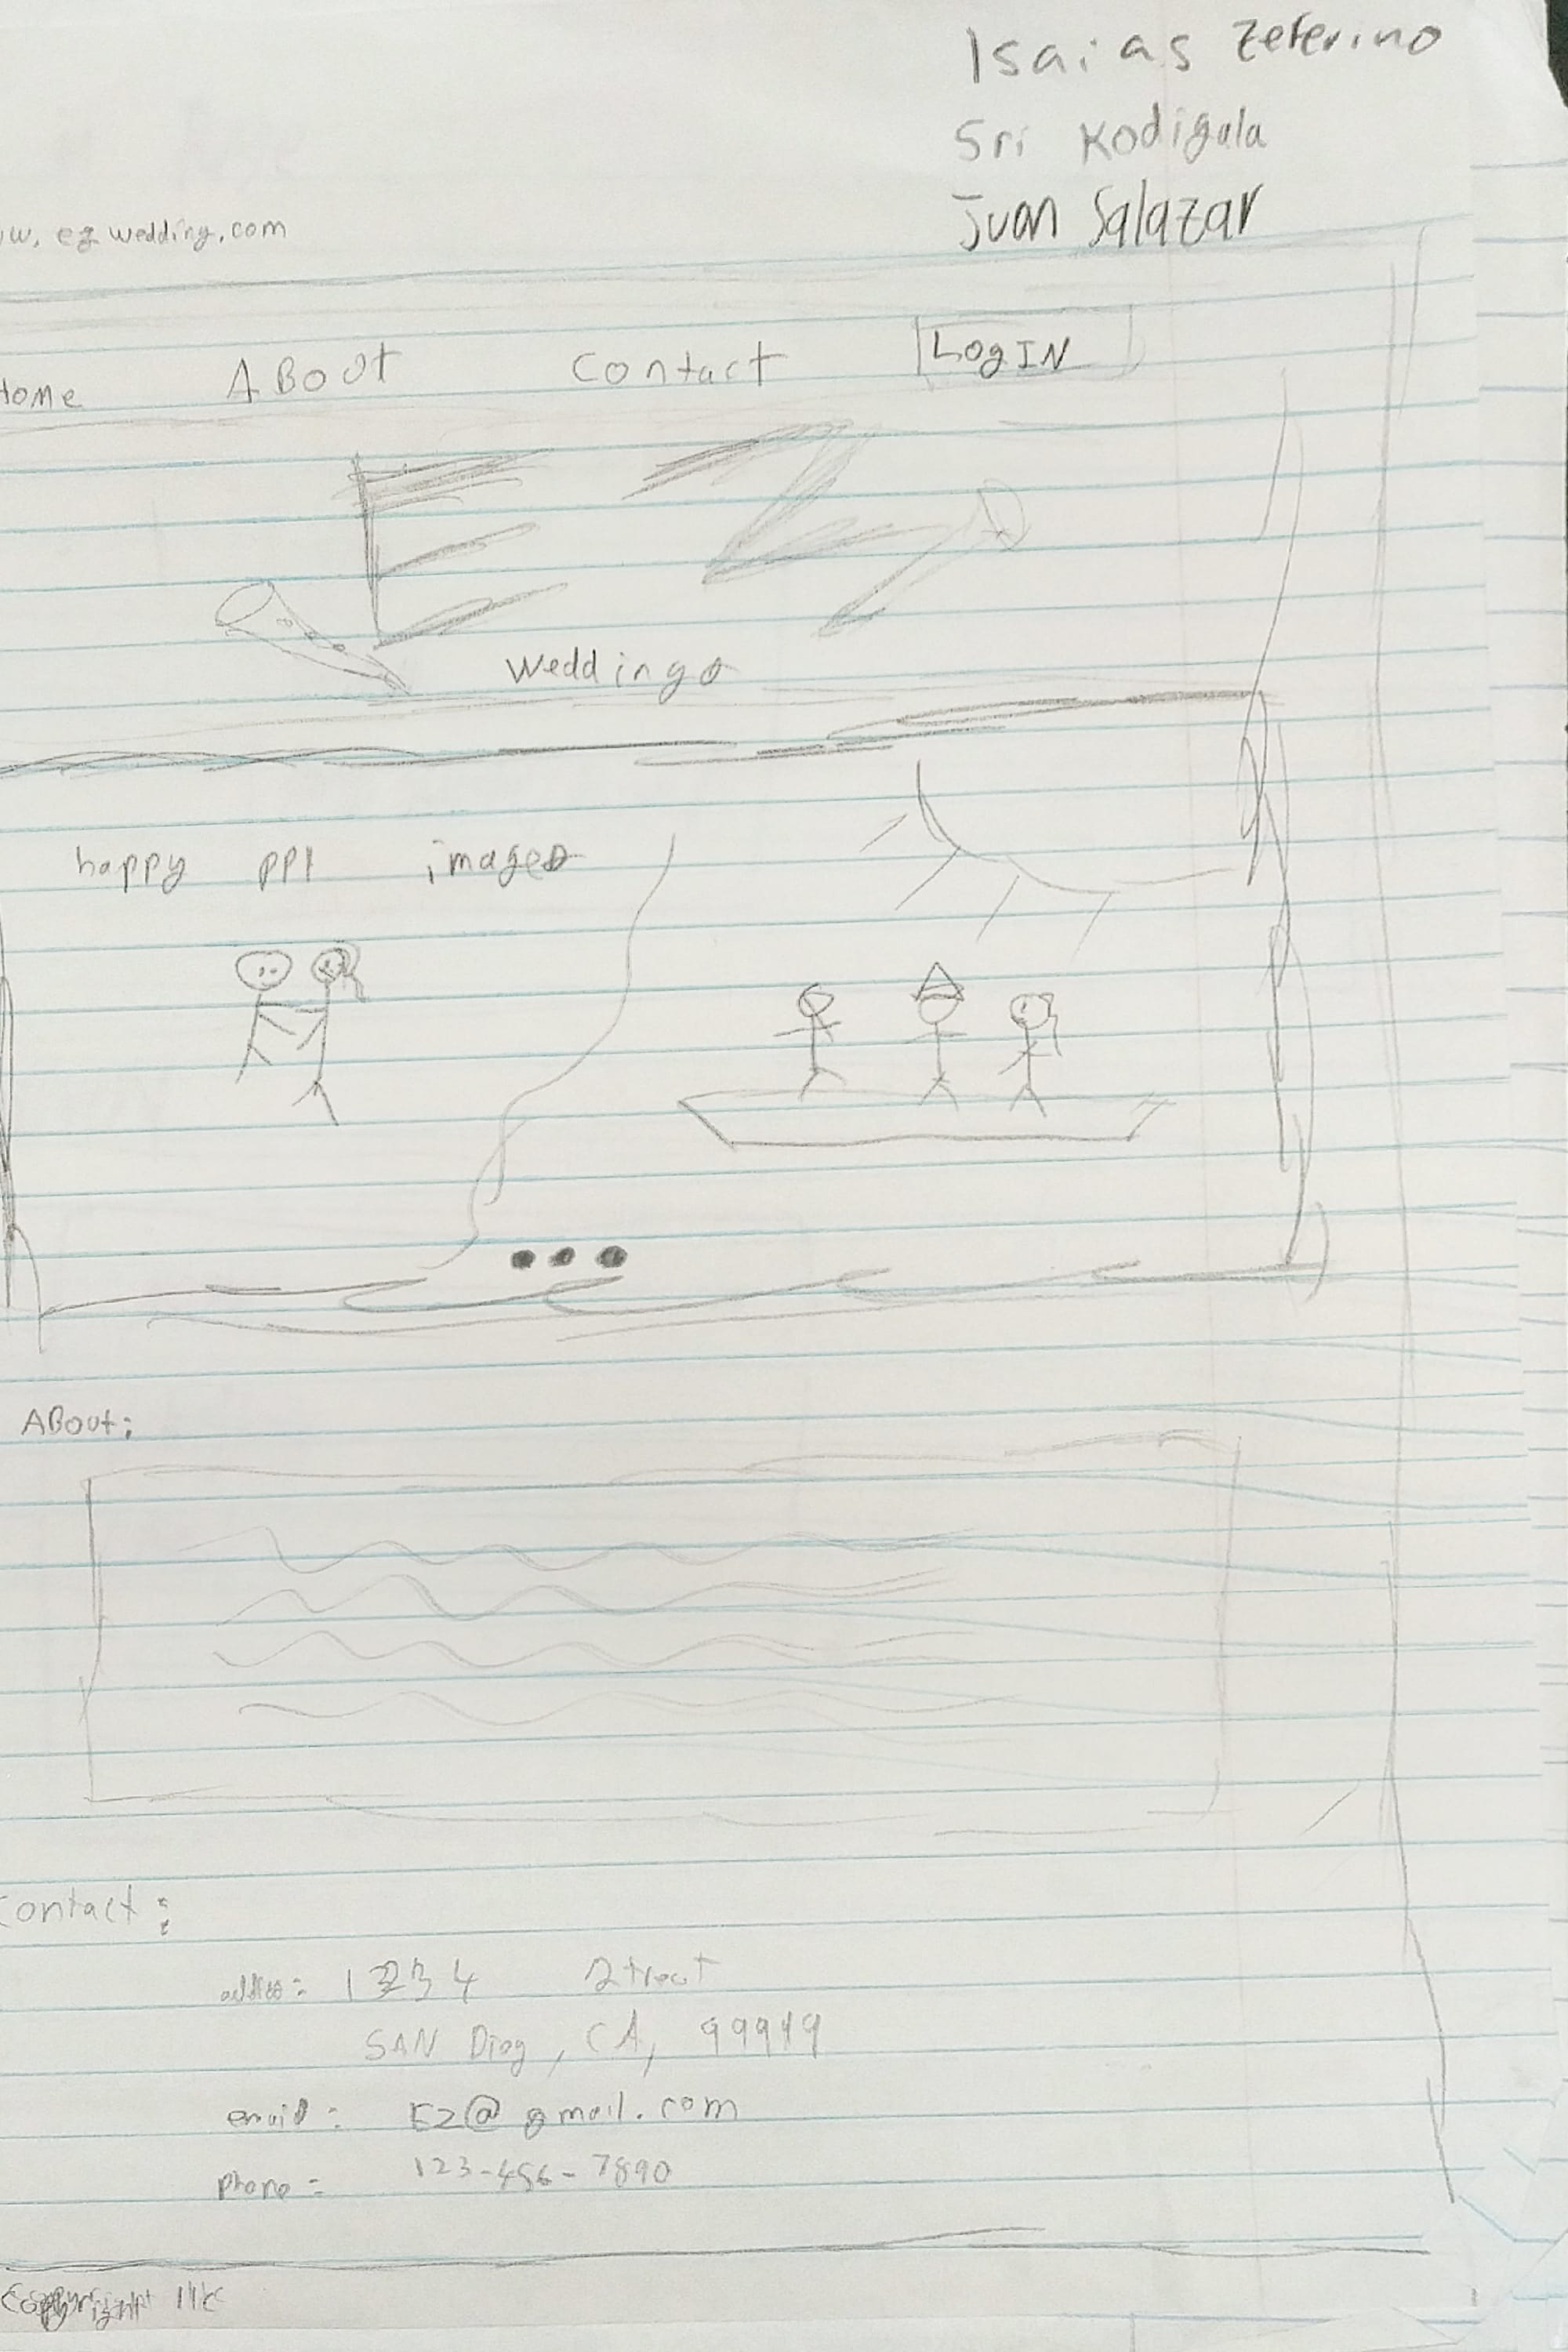 Isaias Zeferino
Sri Kodigala
Juan Salazar
ww. ezwedding.com
Home ABout Contact LogIN
EZ
Weddings
happy ppl images
ABout:
Contact:
address: 1234 Street
SAN Diog, CA, 99999
email: EZ@gmail.com
phone: 123-456-7890
Copyright llc